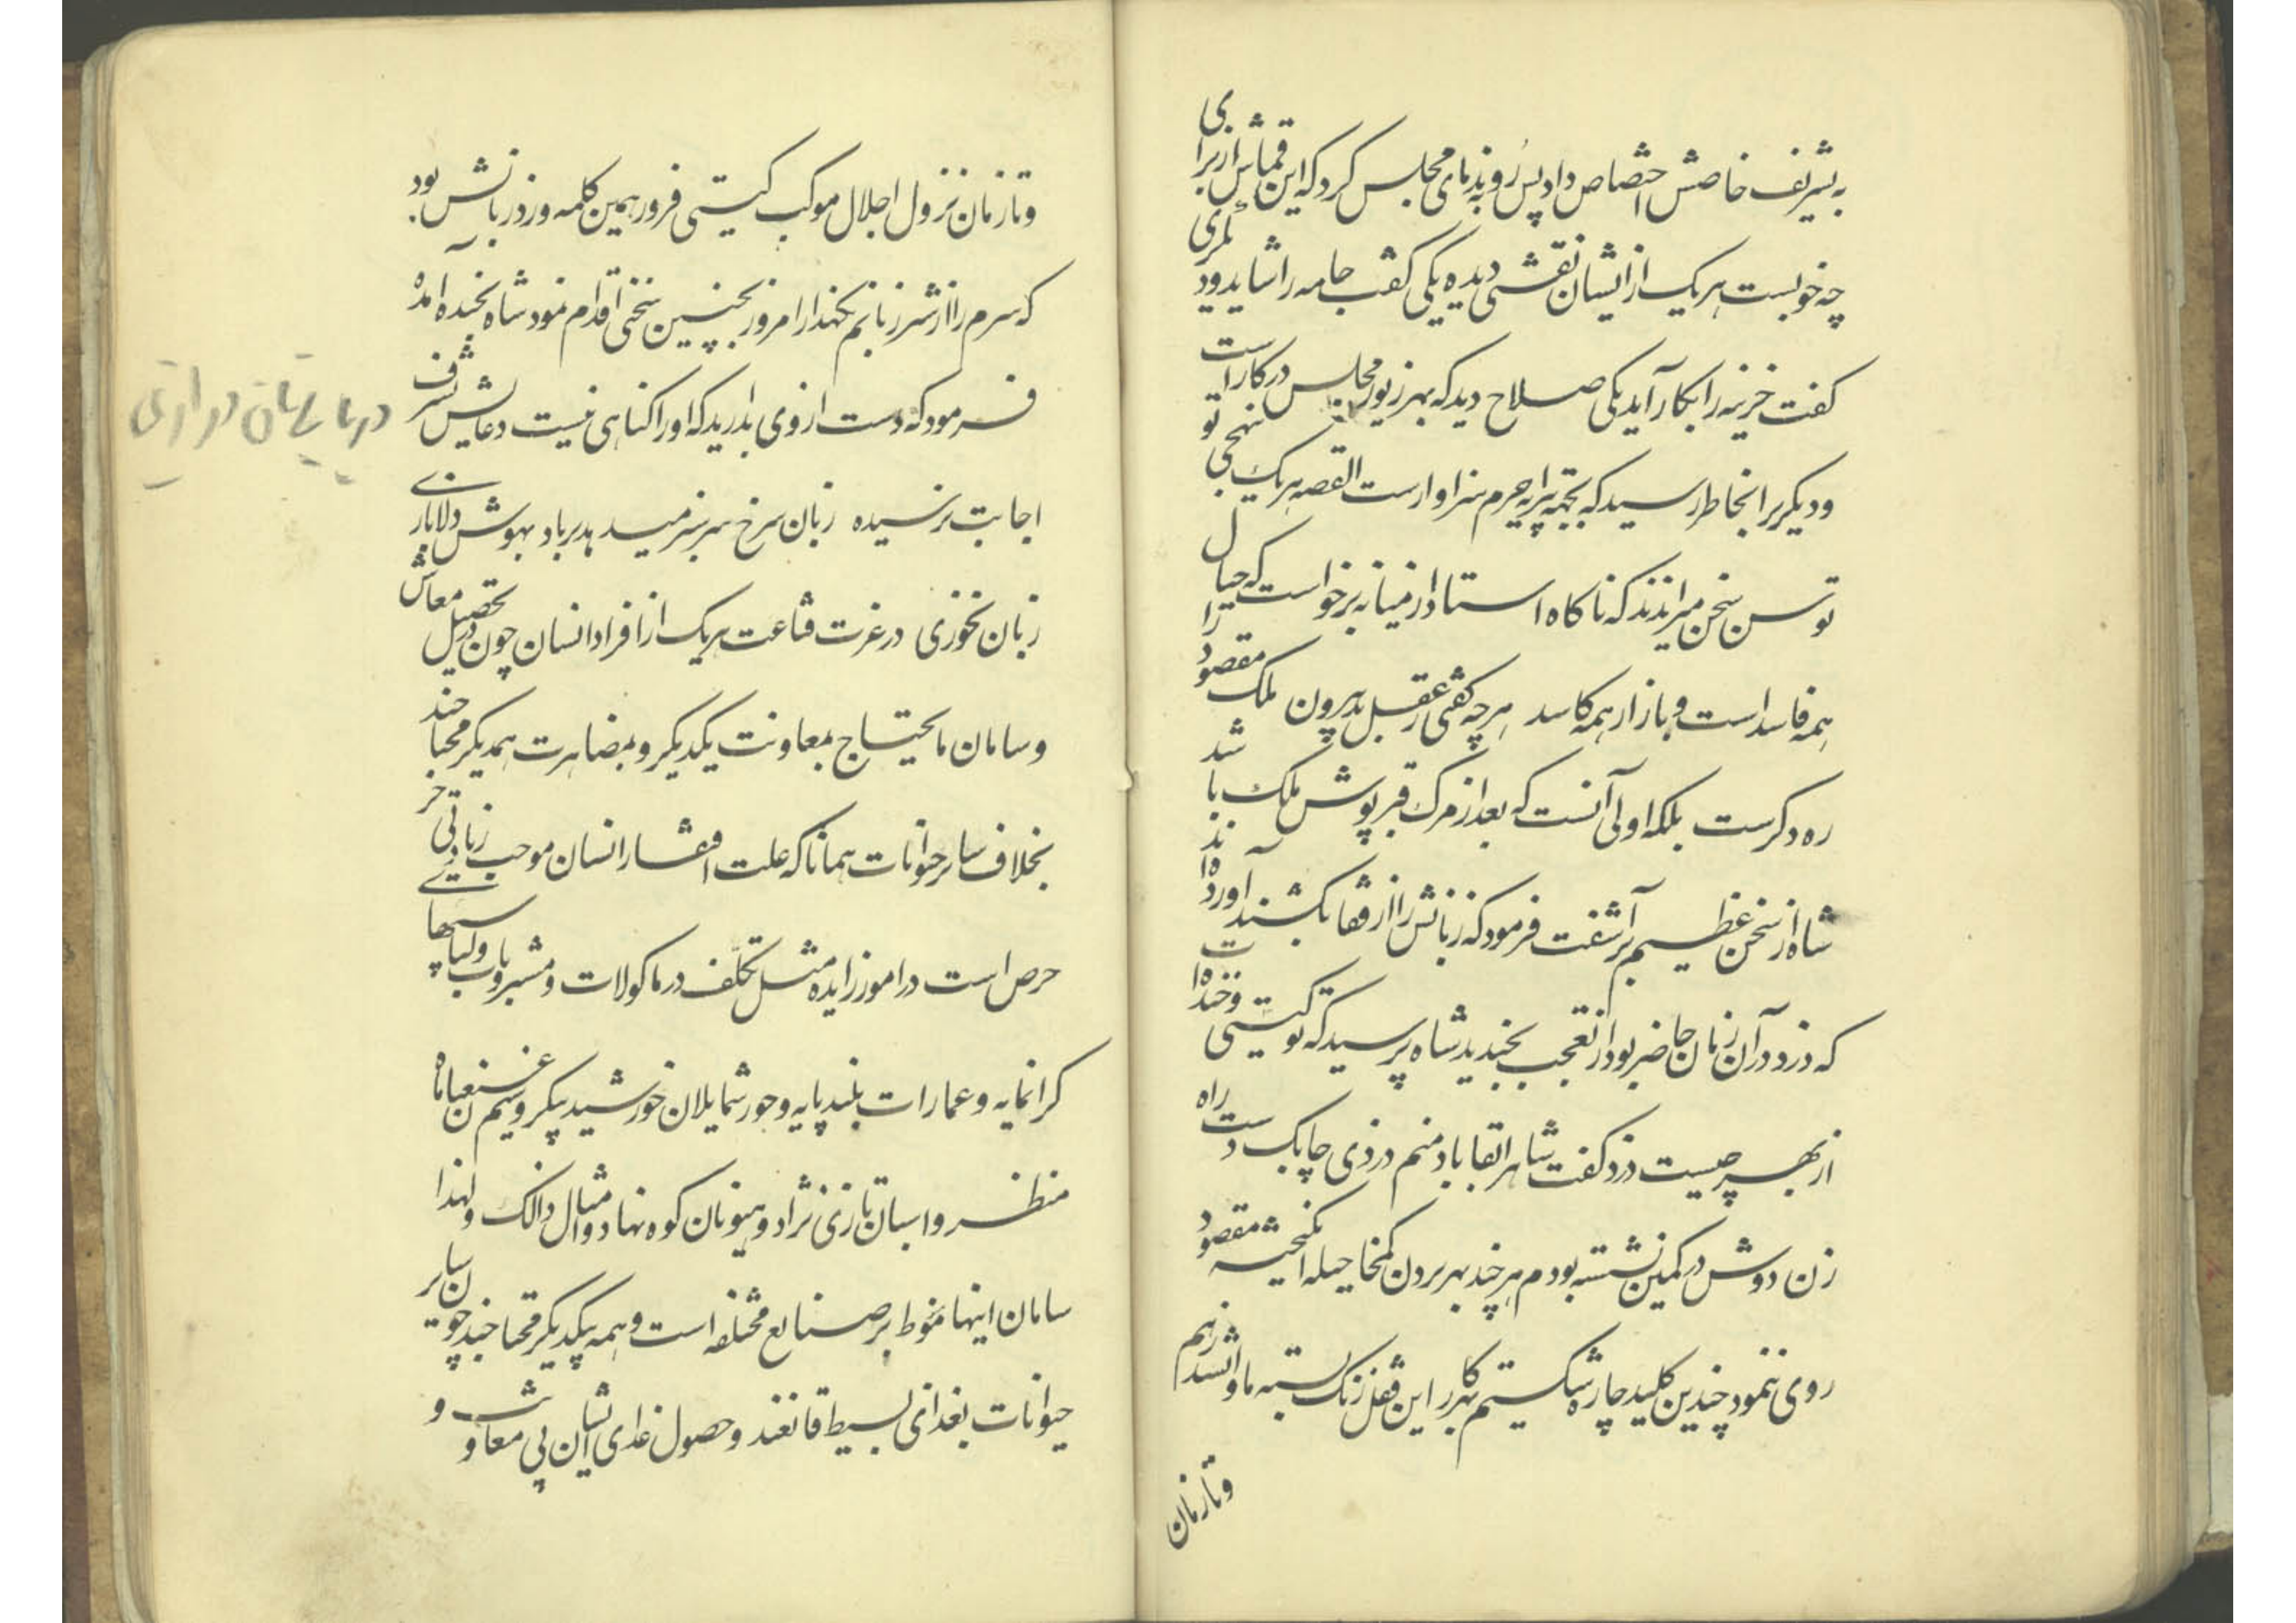 به تشریف خاصش اختصاص داد پس رو به ندمای مجلس کرد که این قماش از برای
چه خوبست هریک از ایشان نقشی دیده یکی گفت جامه را شاید و دیگری
گفت خزینه را بکار آید یکی صلاح دید که بهر زیور مجلس در کار است
و دیگر را بخاطر رسید که بجهة پیرایه حرم سزاوار است القصه هریک بنهجی تو
توسن سخن میراندند که ناکاه استاد از میانه برخواست که خیال
همه فاسد است و بازار همه کاسد هرچه گفتی ز عقل بیرون ملک را مقصود
ره دکرست بلکه اولی آنست که بعد از مرک قبرپوش ملک باشد
شاه از سخن عظیم برآشفت فرمود که زبانش را از قفا بکشند آورده‌اند
که دزد در آن زمان حاضر بود از تعجب بخندید شاه پرسید که تو کیستی و خنده‌ات
از بهر چیست دزد گفت شاها بقا باد منم دزدی چابک دست راه
زن دوش در کمین نشسته بودم هرچند بهر بردن کمخا حیله انگیختم مقصود
روی ننمود چندین کلید چاره شکستیم که در این قفل زنک بسته ما وا نشد زهم
و تا زمان
و تا زمان نزول اجلال موکب کیتی فروز همین کلمه ورد زبانش بود
که سرم را از شر زبانم نکهدار امروز بچنین سخنی اقدام نمود شاه بخنده آمده
فرمود که دست از وی بدارید که او را کناهی نیست دعایش بشرف
اجابت نرسیده زبان سرخ سر سبز میدهد برباد بهوش دلا بازی
زبان نخوری در عزت قناعت هریک از افراد انسان چون در تحصیل معاش
و سامان مایحتاج بمعاونت یکدیکر و بمضاهرت همدیکر محتاجند
بخلاف سایر حیوانات همانا که علت افتقار انسان موجب زیادتی حر
حرص است در امور زایده مثل تکلف در ماکولات و مشروبات و لباسهای
کرانمایه و عمارات بلند پایه و حور شمایلان خورشید پیکر و سیم غبغبان ماه
منظر و اسبان تازی نژاد و هیونان کوه نهاد و امثال ذالک و لهذا
سامان اینها منوط بر صنایع مختلفه است و همه بیکدیکر محتاجند چون سایر
حیوانات بغذای بسیط قانعند و حصول غذای ایشان بی معاونت و
در بیان دراری